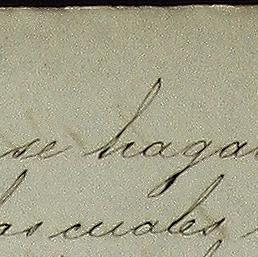 se hagan
las cuales